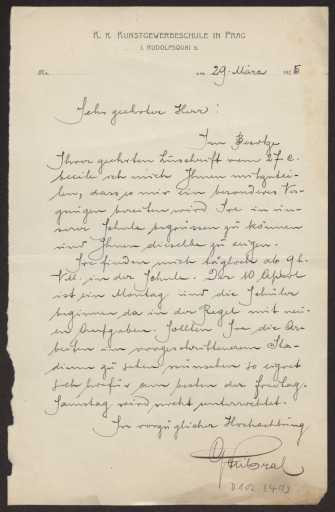 K. K. KUNSTGEWERBESCHULE IN PRAG
I. RUDOLFSQUAI 5.
No. am 29. März 19
Sehr geehrter Herr!
Im Besitze
Ihrer geehrten Zuschrift vom 27 c.
beeile ich mich Ihnen mitzutei-
len, dass es mir ein besonderes Ver-
gnügen bereiten wird Sie in un-
serer Schule begrüssen zu können
und Ihnen dieselbe zu zeigen.
Sie finden mich täglich ab 9 h.
in der Schule. Der 10 April
ist ein Montag und die Schüler
beginnen da in der Regel mit neu-
en Aufgaben. Sollten Sie die Ar-
beiten im vorgeschrittenerem Sta-
dium zu sehen wünschen so eignet
sich hiefür am besten der Freitag.
Samstag wird nicht unterrichtet.
In vorzüglicher Hochachtung